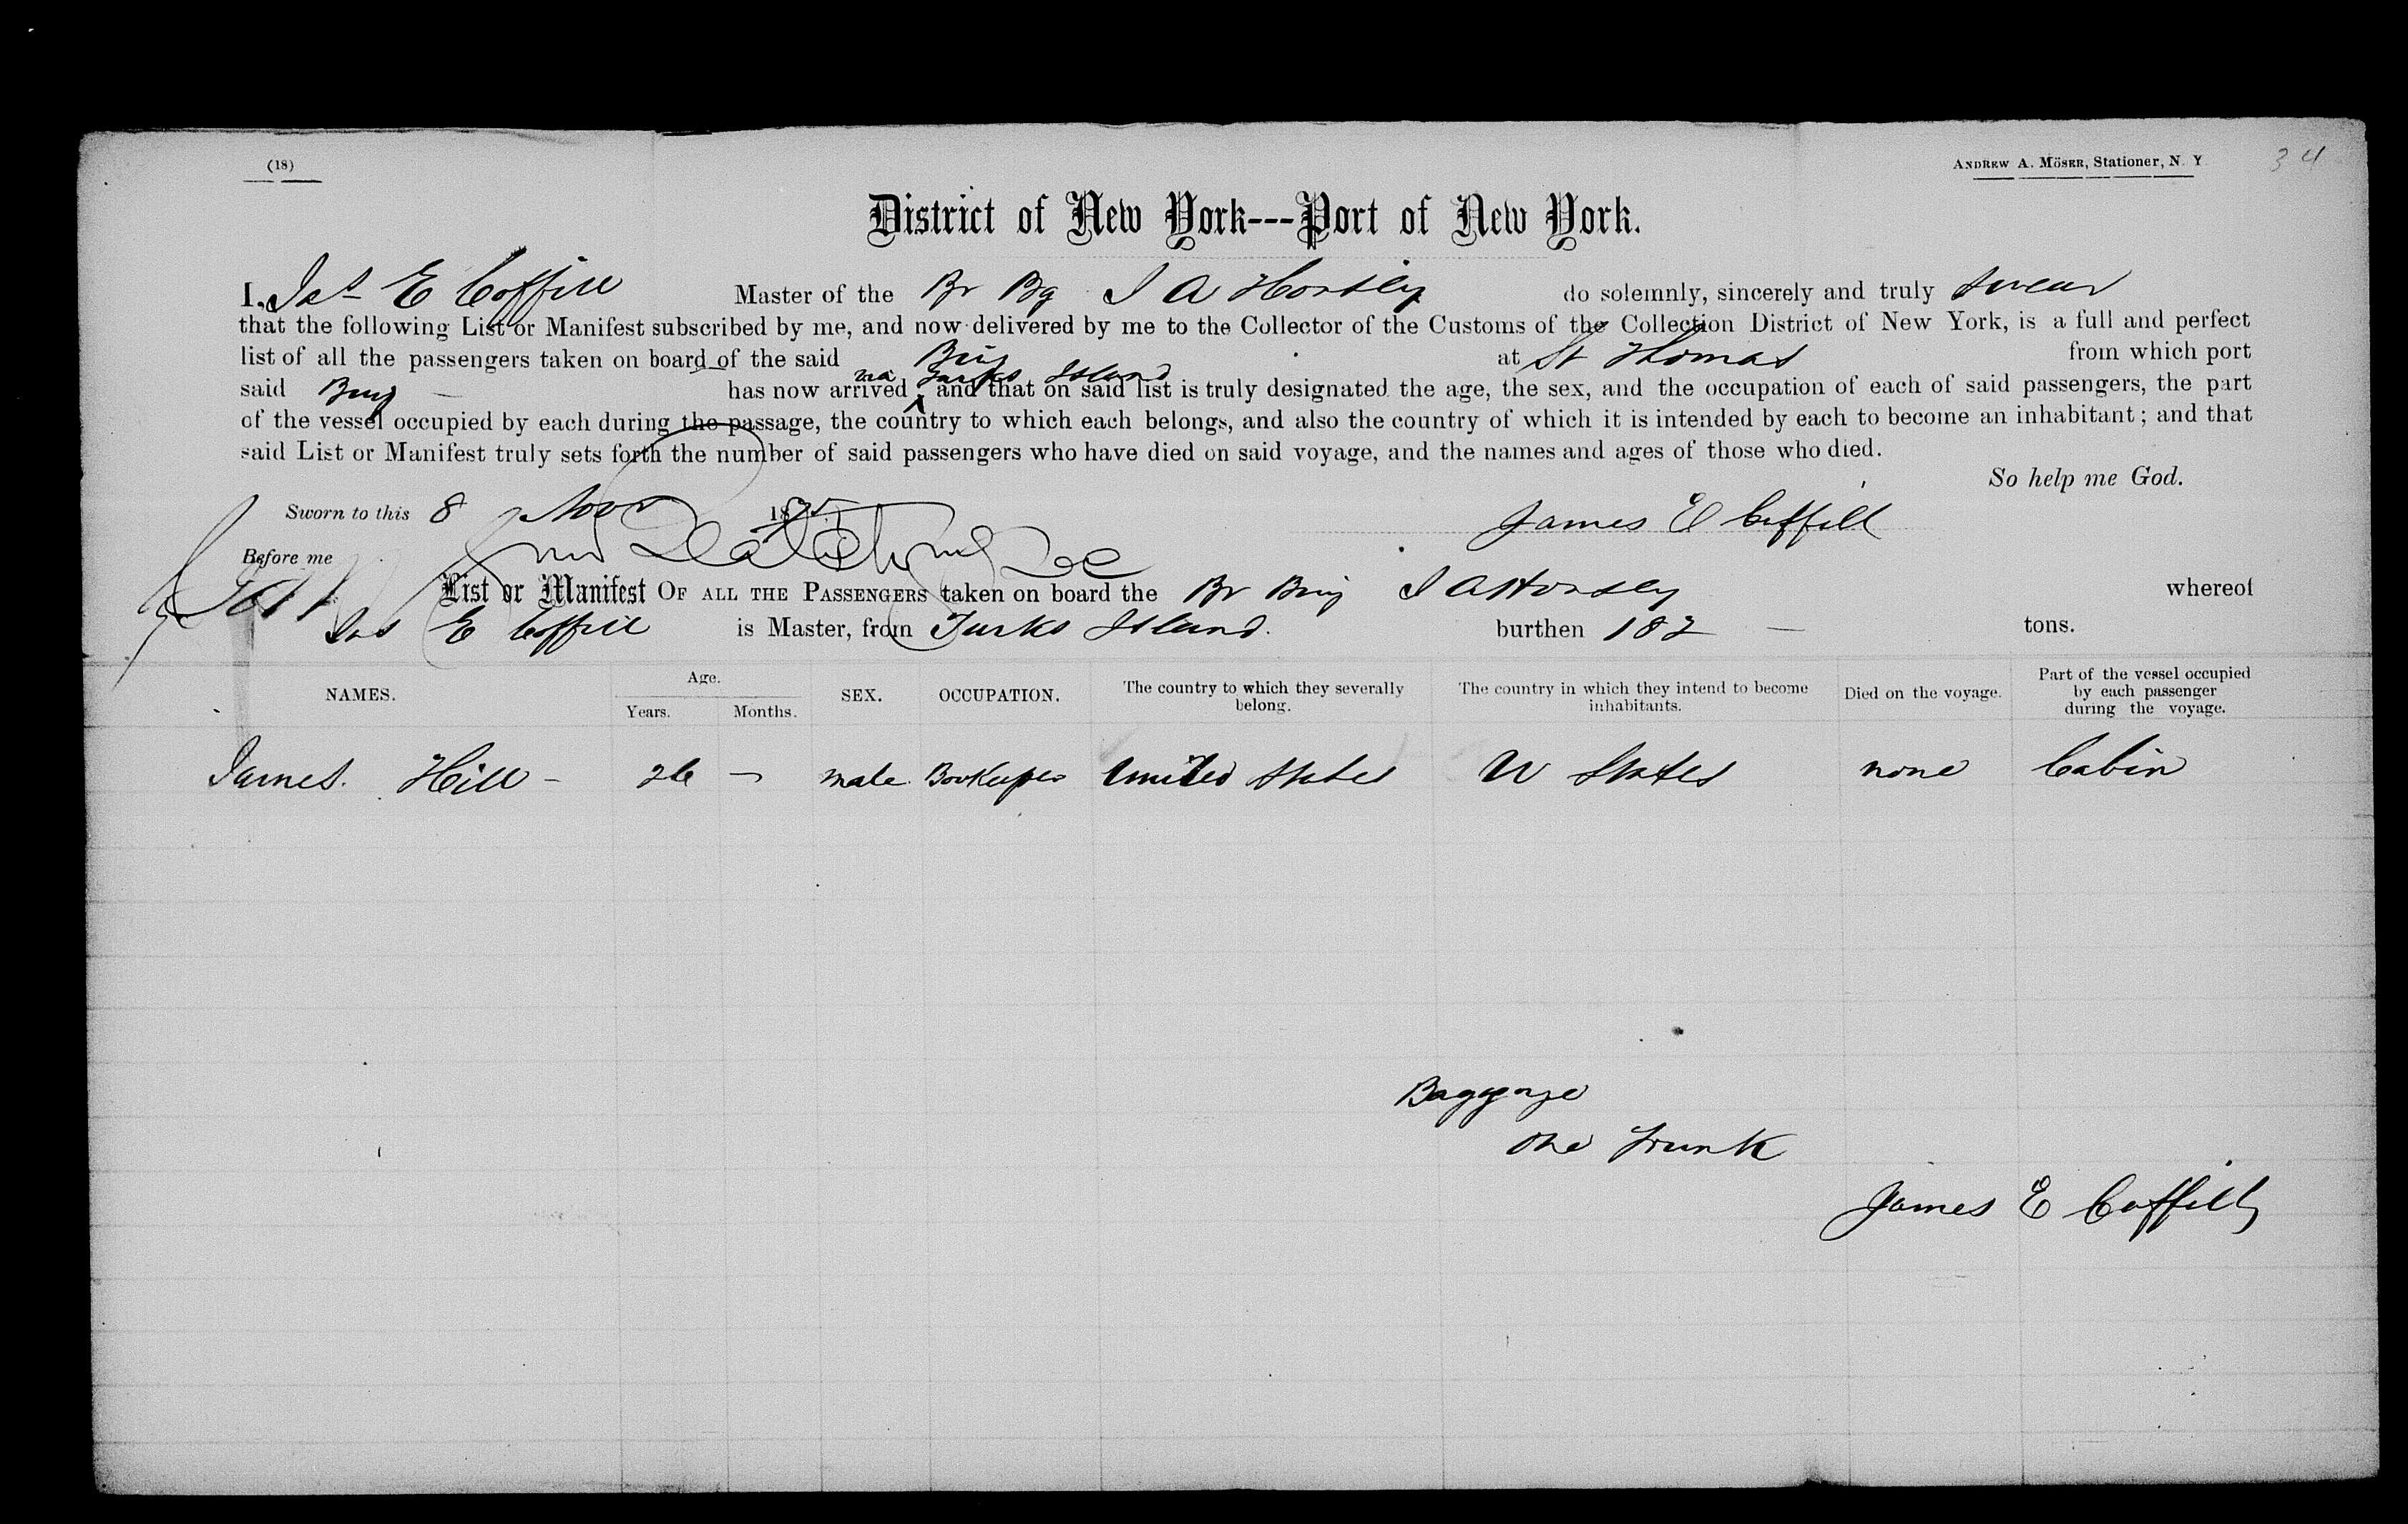 (18)
ANDREW A. MÖSER, Stationer, N. Y
34
District of New York---Port of New York.
I, Jas E Coffill Master of the Br Bg J A Horsley do solemnly, sincerely and truly swear
that the following List or Manifest subscribed by me, and now delivered by me to the Collector of the Customs of the Collection District of New York, is a full and perfect
list of all the passengers taken on board of the said Brig at St Thomas from which port
via Turks Island
said Brig has now arrived ^ and that on said list is truly designated the age, the sex, and the occupation of each of said passengers, the part
of the vessel occupied by each during the passage, the country to which each belongs, and also the country of which it is intended by each to become an inhabitant; and that
said List or Manifest truly sets forth the number of said passengers who have died on said voyage, and the names and ages of those who died.
So help me God.
Sworn to this 8 Novr 1875 James E Coffill
Before me
List or Manifest OF ALL THE PASSENGERS taken on board the Br Brig J A Horsley whereof
Jas E Coffill is Master, from Turks Island. burthen 182 — tons.
NAMES. Age. Years. Months. SEX. OCCUPATION. The country to which they severally belong. The country in which they intend to become inhabitants. Died on the voyage. Part of the vessel occupied by each passenger during the voyage.
James. Hill - 26 — male Bookeeper United States U States none Cabin
Baggage
one trunk
James E Coffill